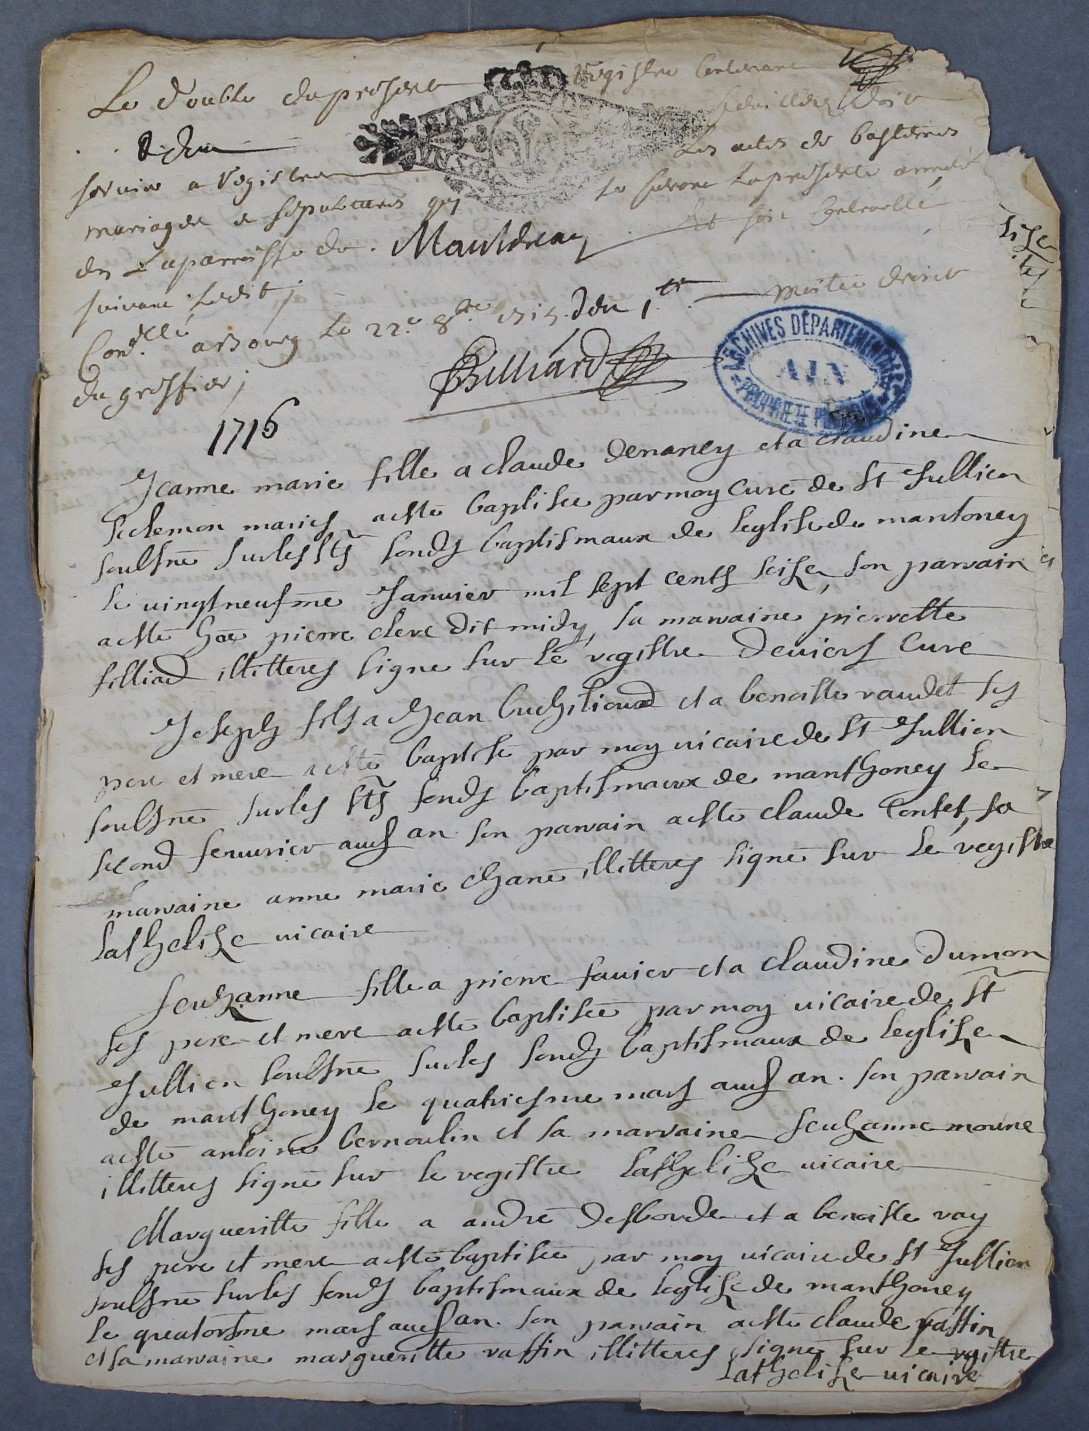 Le double du present Registre contenant
feuilles doit
servir a Registrer les actes de baptemes
mariages et sepultures qui se feront la presente année
en La parroisse de Mantenay
suivant Ledit,
Con.lle a Bourg le 22e 8bre 1715 moitié droit
du greffier,
Billiard
ARCHIVES DÉPARTEMENTALES
AIN
PROPRIÉTÉ PUBLIQUE
1716
Jeanne marie fille a claude denancy et a claudine
maries a esté baptisée par moy curé de St Jullien
soulsne sur les sts fonds baptismaux de leglise de mantoney
le vingtneufme Janvier mil sept cents seize, son parrain
a esté pierre clerc dit midy, sa marraine pierrette
filliad illitteres signé sur le registre deviers curé
Joseph fils a Jean buchilioud et a benoiste vaudet ses
pere et mere a esté baptisé par moy vicaire de St Jullien
soulsne sur les sts fonds baptismaux de manthoney le
second fevurier auf an son parrain a esté claude contet, sa
marraine anne marie chané illitteres signé sur le registre
Lathelize vicaire
seuzanne fille a pierre favier et a claudine dumon
ses pere et mere a esté baptisée par moy vicaire de St
Jullien soulsne sur les fonds baptismaux de leglize
de manthoney le quatriesme mars auf an. son parrain
a esté antoine bernoulin et sa marraine seuzanne moune
illitteres signé sur le registre Lathelize vicaire
Margueritte fille a andré desborde et a benoiste ray
ses pere et mere a esté baptisée par moy vicaire de St Jullien
soulsne sur les fonds baptismaux de leglize de manthoney
le quatorsme mars auf an. son parrain a esté claude raffin
et sa marraine margueritte raffin illitteres signé sur le registre
Lathelize vicaire